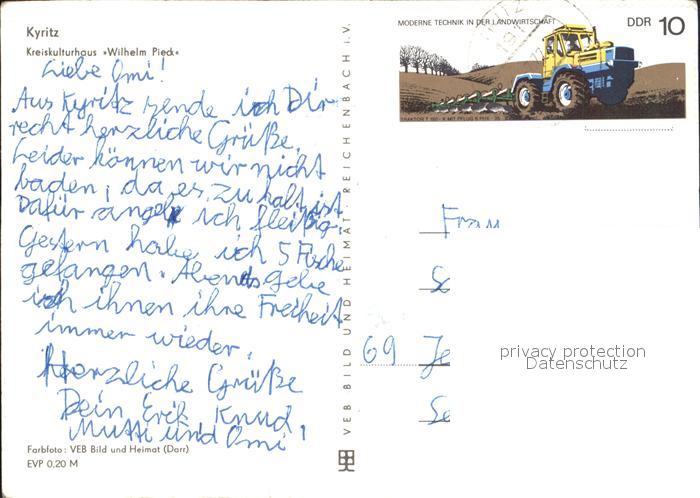 Kyritz
Kreiskulturhaus »Wilhelm Pieck«
Liebe Omi!
Aus Kyritz sende ich Dir
recht herzliche Grüße.
Leider können wir nicht
baden, da es zu kalt ist.
Dafür angele ich fleißig.
Gestern habe ich 5 Fische
gefangen. Abends gebe
ich ihnen ihre Freiheit
immer wieder.
Herzliche Grüße
Dein Erik Knud,
Mutti und Omi!
Farbfoto: VEB Bild und Heimat (Darr)
EVP 0,20 M
VEB BILD UND HEIMAT REICHENBACH i. V.
MODERNE TECHNIK IN DER LANDWIRTSCHAFT
DDR 10
Frau
69 Je
privacy protection
Datenschutz